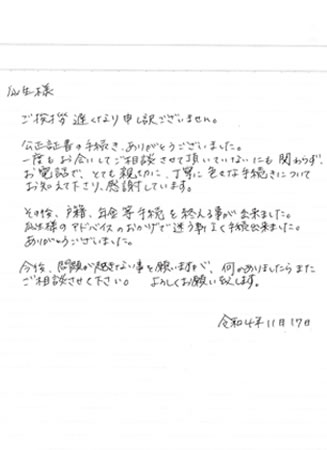 弘生様
ご挨拶 遅くなり申し訳ございません。
公正証書の手続き、ありがとうございました。
一度もお会いしてご相談させて頂いていないにも関わらず、
お電話で、とても親切に、丁寧に色々な手続きについて
お知え下さり、感謝しています。
その後、戸籍、年金等手続を終える事が出来ました。
弘生様のアドバイスのおかげで迷う事なく手続出来ました。
ありがとうございました。
今後、問題が起きない事を願いますが、何かありましたらまた
ご相談させて下さい。 よろしくお願い致します。
令和4年11月17日